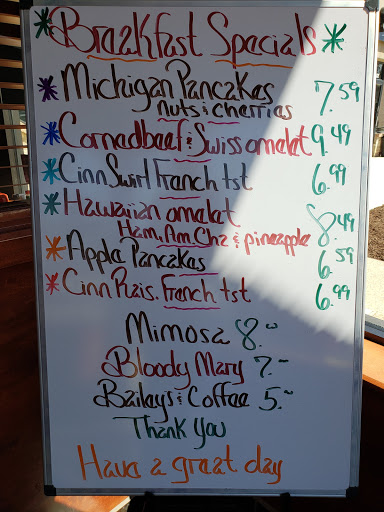 Breakfast Specials
Michigan Pancakes 7.59
Nuts & Cherries
Cornedbeef & Swiss omelet 9.49
Cinn Swirl French tst 6.99
Hawaiian omelet 8.49
Ham, Am. Chz & pineapple
Apple Pancakes 6.59
Cinn Rais. French tst 6.99
Mimosa 8.--
Bloody Mary 7.--
Baileys & Coffee 5.--
Thank You
Have a great day